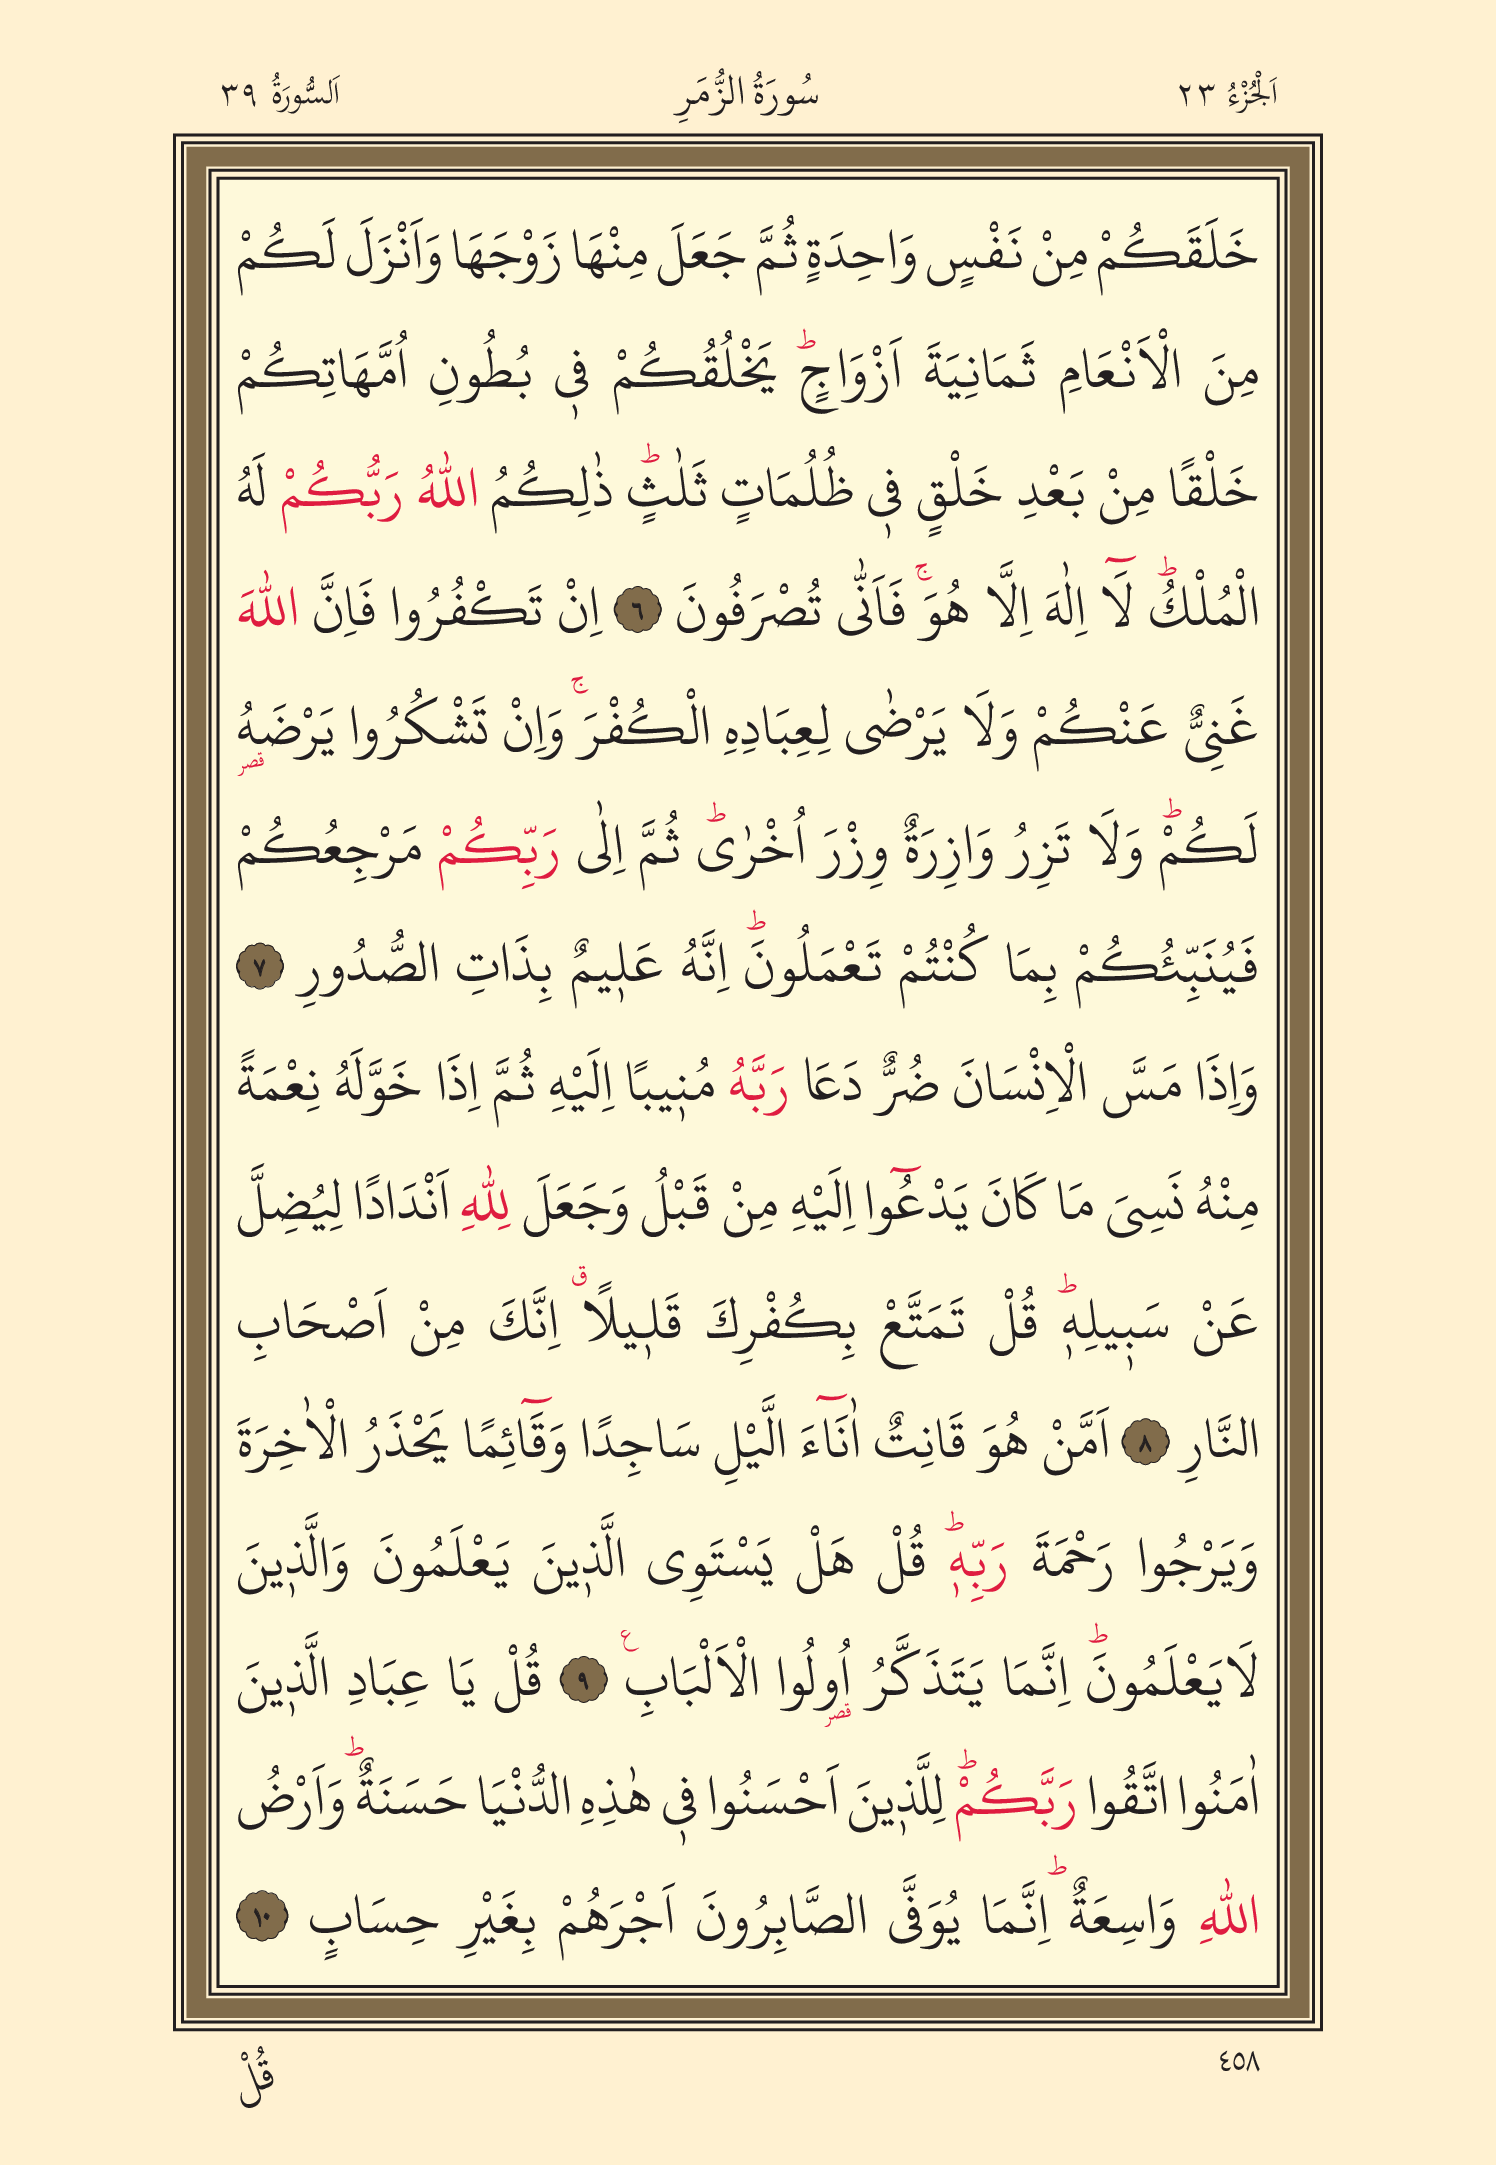 اَلْجُزْءُ ٢٣
سُورَةُ الزُّمَرِ
اَلسُّورَةُ ٣٩
خَلَقَكُمْ مِنْ نَفْسٍ وَاحِدَةٍ ثُمَّ جَعَلَ مِنْهَا زَوْجَهَا وَاَنْزَلَ لَكُمْ
مِنَ الْاَنْعَامِ ثَمَانِيَةَ اَزْوَاجٍۜ يَخْلُقُكُمْ فٖي بُطُونِ اُمَّهَاتِكُمْ
خَلْقًا مِنْ بَعْدِ خَلْقٍ فٖي ظُلُمَاتٍ ثَلٰثٍۜ ذٰلِكُمُ اللّٰهُ رَبُّكُمْ لَهُ
الْمُلْكُۜ لَٓا اِلٰهَ اِلَّا هُوَۚ فَاَنّٰى تُصْرَفُونَ ٦ اِنْ تَكْفُرُوا فَاِنَّ اللّٰهَ
غَنِيٌّ عَنْكُمْ وَلَا يَرْضٰى لِعِبَادِهِ الْكُفْرَۚ وَاِنْ تَشْكُرُوا يَرْضَهُ قصر
لَكُمْۜ وَلَا تَزِرُ وَازِرَةٌ وِزْرَ اُخْرٰىۜ ثُمَّ اِلٰى رَبِّكُمْ مَرْجِعُكُمْ
فَيُنَبِّئُكُمْ بِمَا كُنْتُمْ تَعْمَلُونَۜ اِنَّهُ عَلٖيمٌ بِذَاتِ الصُّدُورِ ٧
وَاِذَا مَسَّ الْاِنْسَانَ ضُرٌّ دَعَا رَبَّهُ مُنٖيبًا اِلَيْهِ ثُمَّ اِذَا خَوَّلَهُ نِعْمَةً
مِنْهُ نَسِيَ مَا كَانَ يَدْعُٓوا اِلَيْهِ مِنْ قَبْلُ وَجَعَلَ لِلّٰهِ اَنْدَادًا لِيُضِلَّ
عَنْ سَبٖيلِهٖۜ قُلْ تَمَتَّعْ بِكُفْرِكَ قَلٖيلًاࣗ اِنَّكَ مِنْ اَصْحَابِ
النَّارِ ٨ اَمَّنْ هُوَ قَانِتٌ اٰنَٓاءَ الَّيْلِ سَاجِدًا وَقَٓائِمًا يَحْذَرُ الْاٰخِرَةَ
وَيَرْجُوا رَحْمَةَ رَبِّهٖۜ قُلْ هَلْ يَسْتَوِي الَّذٖينَ يَعْلَمُونَ وَالَّذٖينَ
لَا يَعْلَمُونَۜ اِنَّمَا يَتَذَكَّرُ اُو۬لُوا الْاَلْبَابِ ع ٩ قُلْ يَا عِبَادِ الَّذٖينَ
اٰمَنُوا اتَّقُوا رَبَّكُمْۜ لِلَّذٖينَ اَحْسَنُوا فٖي هٰذِهِ الدُّنْيَا حَسَنَةٌۜ وَاَرْضُ
اللّٰهِ وَاسِعَةٌۜ اِنَّمَا يُوَفَّى الصَّابِرُونَ اَجْرَهُمْ بِغَيْرِ حِسَابٍ ١٠
٤٥٨
قُلْ